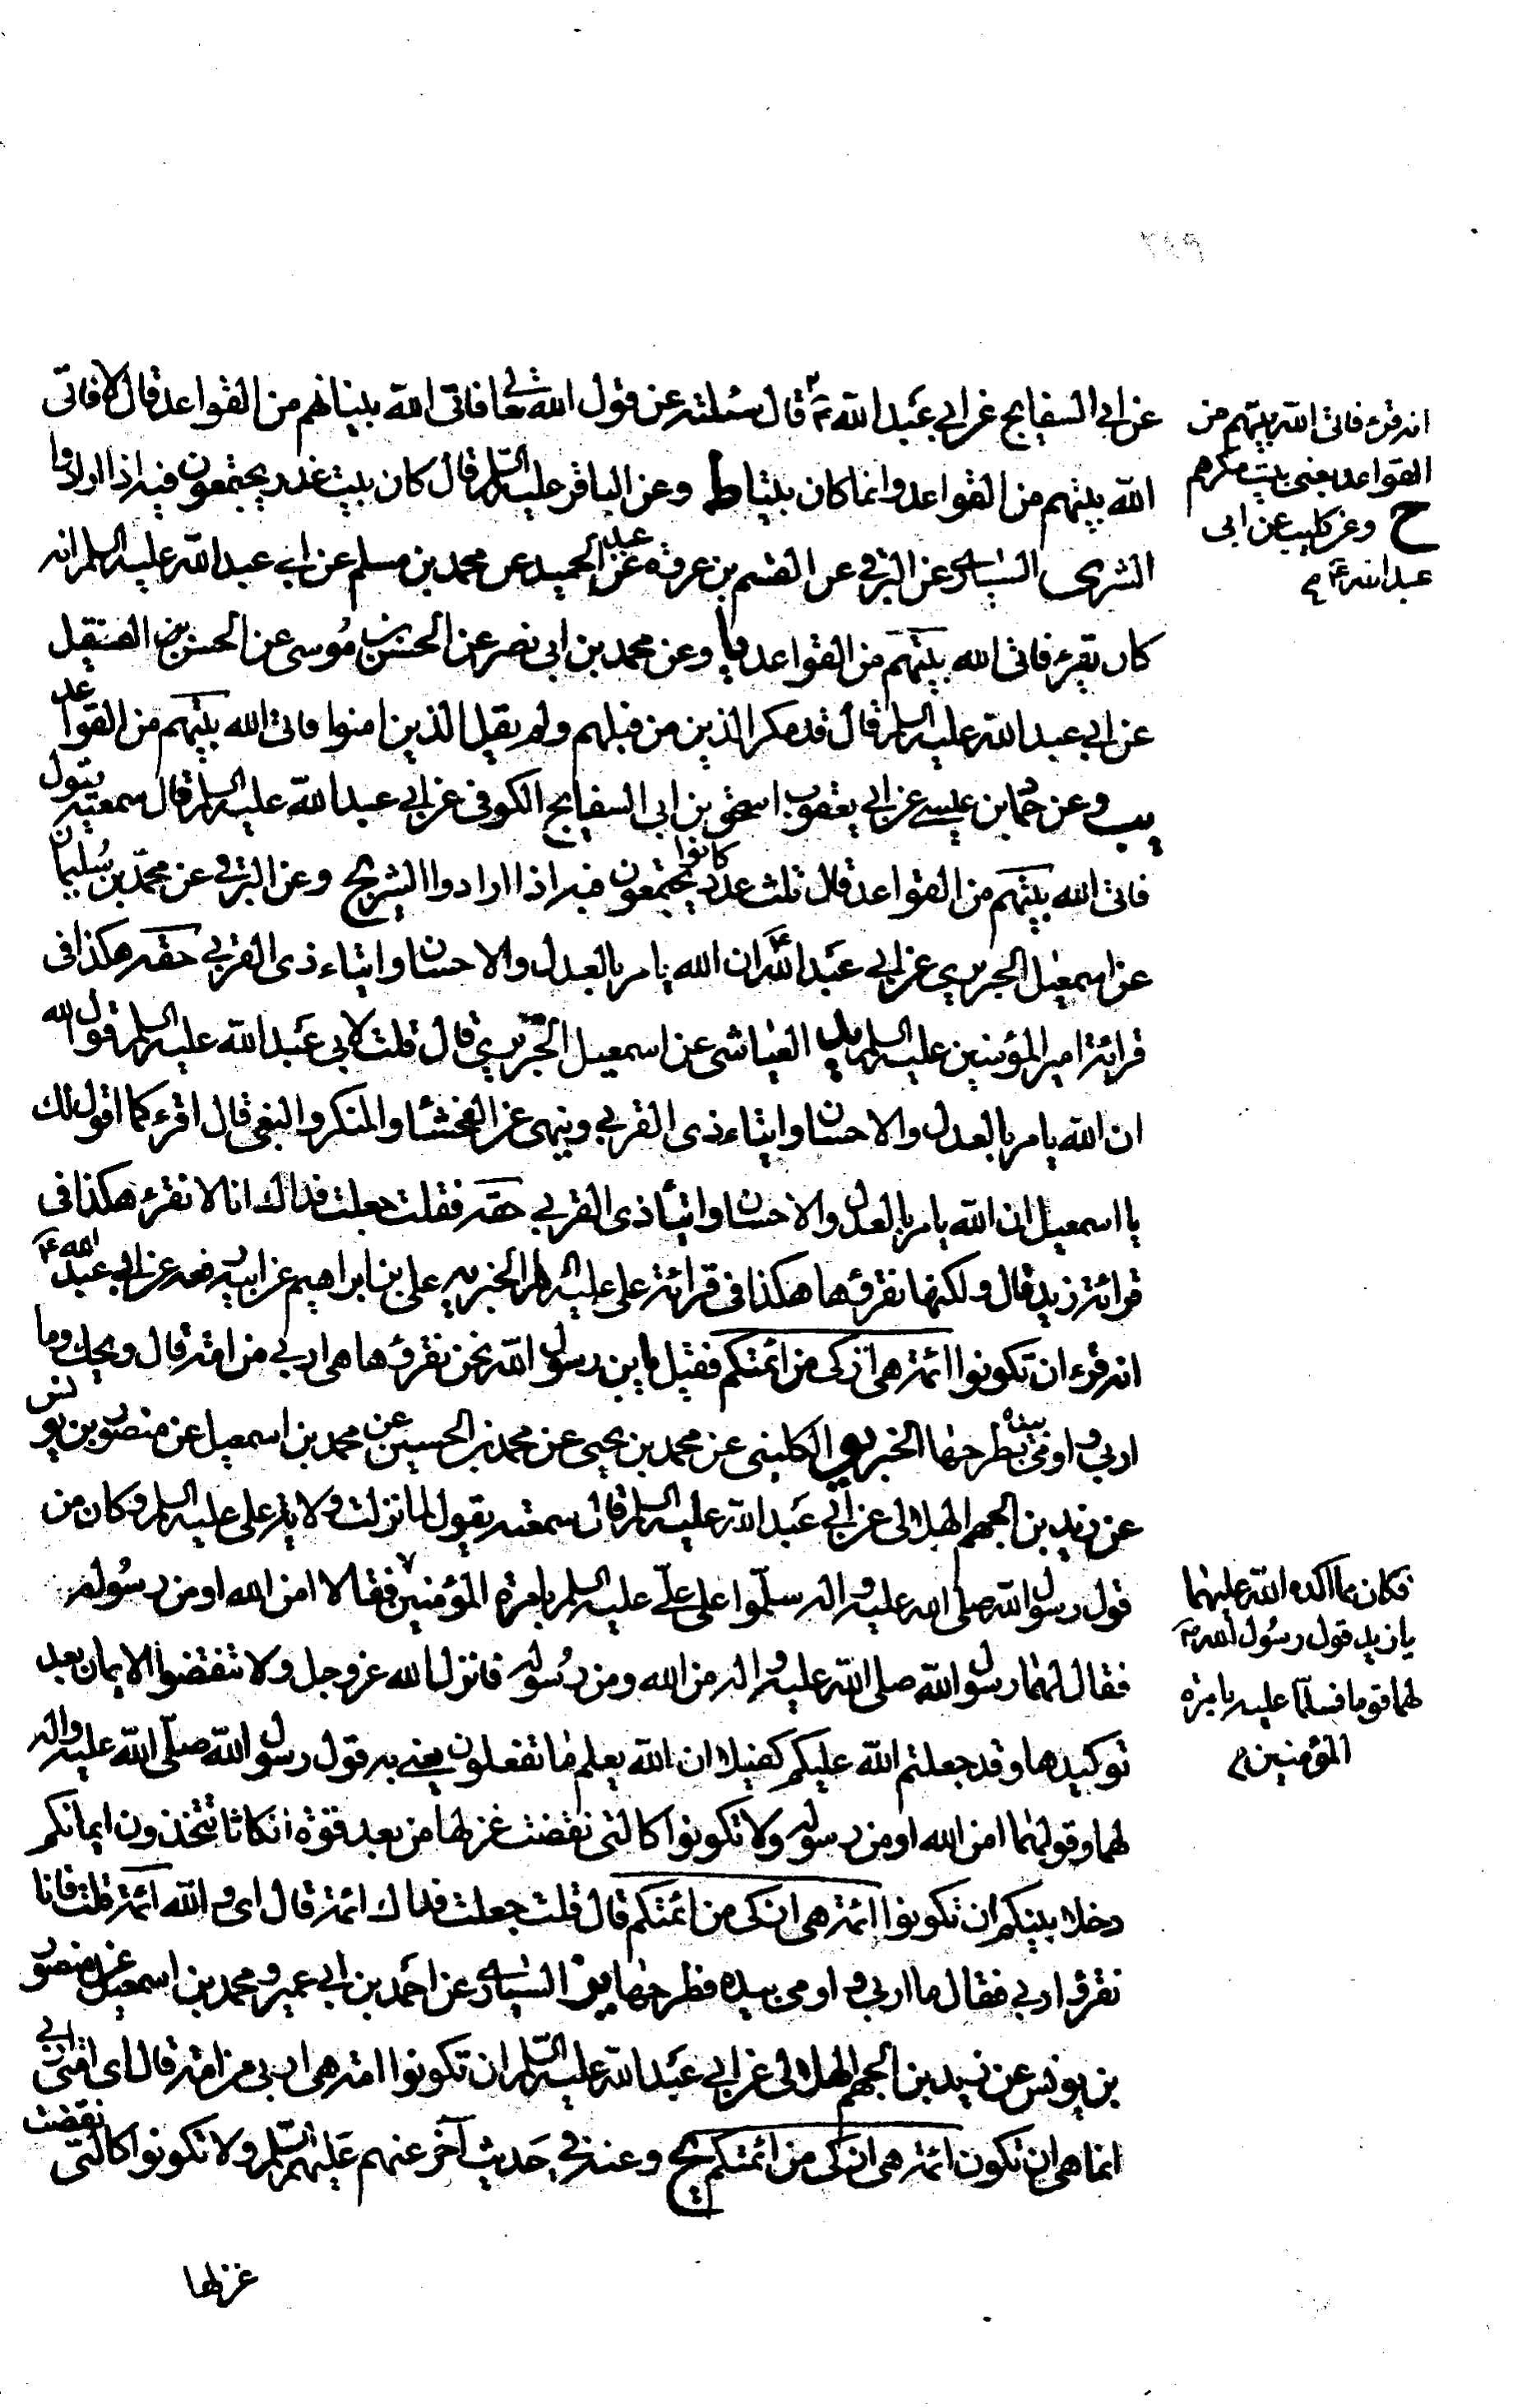 عن ابي السفايج عن ابي عبد الله ع قال سئلته عن قول الله تعالى فاتى الله بنيانهم من القواعد قال لا فاتى
الله بيتهم من القواعد وانما كان بيتا ط وعن الباقر عليه السلم قال كان بيت غدر يجتمعون فيه اذا ارادوا
الشر ى السياري عن البرقي عن القسم بن عروة عن عبد الحميد عن محمد بن مسلم عن ابي عبد الله عليه السلم انه
كان يقرء فاتى الله بيتهم من القواعد يا وعن محمد بن ابي نصر عن الحسن بن موسى عن الحسن بن الصيقل
عن ابي عبد الله عليه السلم قال قد مكر الذين من قبلهم ولم يقل الذين امنوا فاتى الله بيتهم من القواعد
يب وعن حماد بن عيسى عن ابي يعقوب اسحق بن ابي السفايج الكوفي عن ابي عبد الله عليه السلم قال سمعته يقول
فاتى الله بيتهم من القواعد قال ثلث عدد كانوا يجتمعون فيه اذا ارادوا الشر يج وعن البرقي عن محمد بن سليمان
عن اسمعيل الجريري عن ابي عبد الله ع ان الله يامر بالعدل والاحسان وايتاء ذى القربى حقه هكذا في
قرائة امير المؤمنين عليه السلم يد العياشى عن اسمعيل الجريري قال قلت لابي عبد الله عليه السلم قول الله
ان الله يامر بالعدل والاحسان وايتاء ذى القربى وينهى عن الفحشاء والمنكر والبغى قال اقرء كما اقول لك
يا اسمعيل ان الله يامر بالعدل والاحسان وايتاء ذى القربى حقه فقلت جعلت فداك انا لا نقرء هكذا في
قرائة زيد قال ولكنها نقرؤها هكذا في قرائة على عليه السلم الخبر يه على بن ابراهيم عن ابيه رفعه عن ابي عبد الله ع
انه قرء ان تكونوا ائمة هى ازكى من ائمتكم فقيل يا بن رسول الله نحن نقرؤها هى اربى من امة قال ويحك وما
اربى واومى بيده بطرحها الخبر يو الكلينى عن محمد بن يحيى عن محمد بن الحسين عن محمد بن اسمعيل عن منصور بن يونس
عن زيد بن الجهم الهلالى عن ابي عبد الله عليه السلم قال سمعته يقول لما نزلت ولاية على عليه السلم وكان من
قول رسول الله صلى الله عليه واله سلموا على علي عليه السلم بامرة المؤمنين فقالا امن الله او من رسوله
فقال لهما رسول الله صلى الله عليه واله من الله ومن رسوله فانزل الله عز وجل ولا تنقضوا الايمان بعد
توكيدها وقد جعلتم الله عليكم كفيلا ان الله يعلم ما تفعلون يعنى به قول رسول الله صلى الله عليه واله
لهما وقولهما امن الله او من رسوله ولا تكونوا كالتى نقضت غزلها من بعد قوة انكاثا تتخذون ايمانكم
دخلا بينكم ان تكونوا ائمة هى ازكى من ائمتكم قال قلت جعلت فداك ائمة قال اى والله ائمة قلت فانا
نقرؤ اربى فقال ما اربى واومى بيده فطرحها يز السياري عن احمد بن ابي عمير ومحمد بن اسمعيل عن منصور
بن يونس عن زيد بن الجهم الهلالى عن ابي عبد الله عليه السلم ان تكونوا امة هى اربى من امة قال اى اربى
انما هى ان تكون ائمة هى ازكى من ائمتكم يح وعنه في حديث آخر عنهم عليهم السلم ولا تكونوا كالتى نقضت
غزلها
انه قرء فاتى الله بيتهم من
القواعد يعنى بيت مكرهم
ح وعن كليب عن ابى
عبد الله ع
فكان مما اكده الله عليهما
يا زيد قول رسول الله ص
لهما قوما فسلما عليه بامرة
المؤمنين